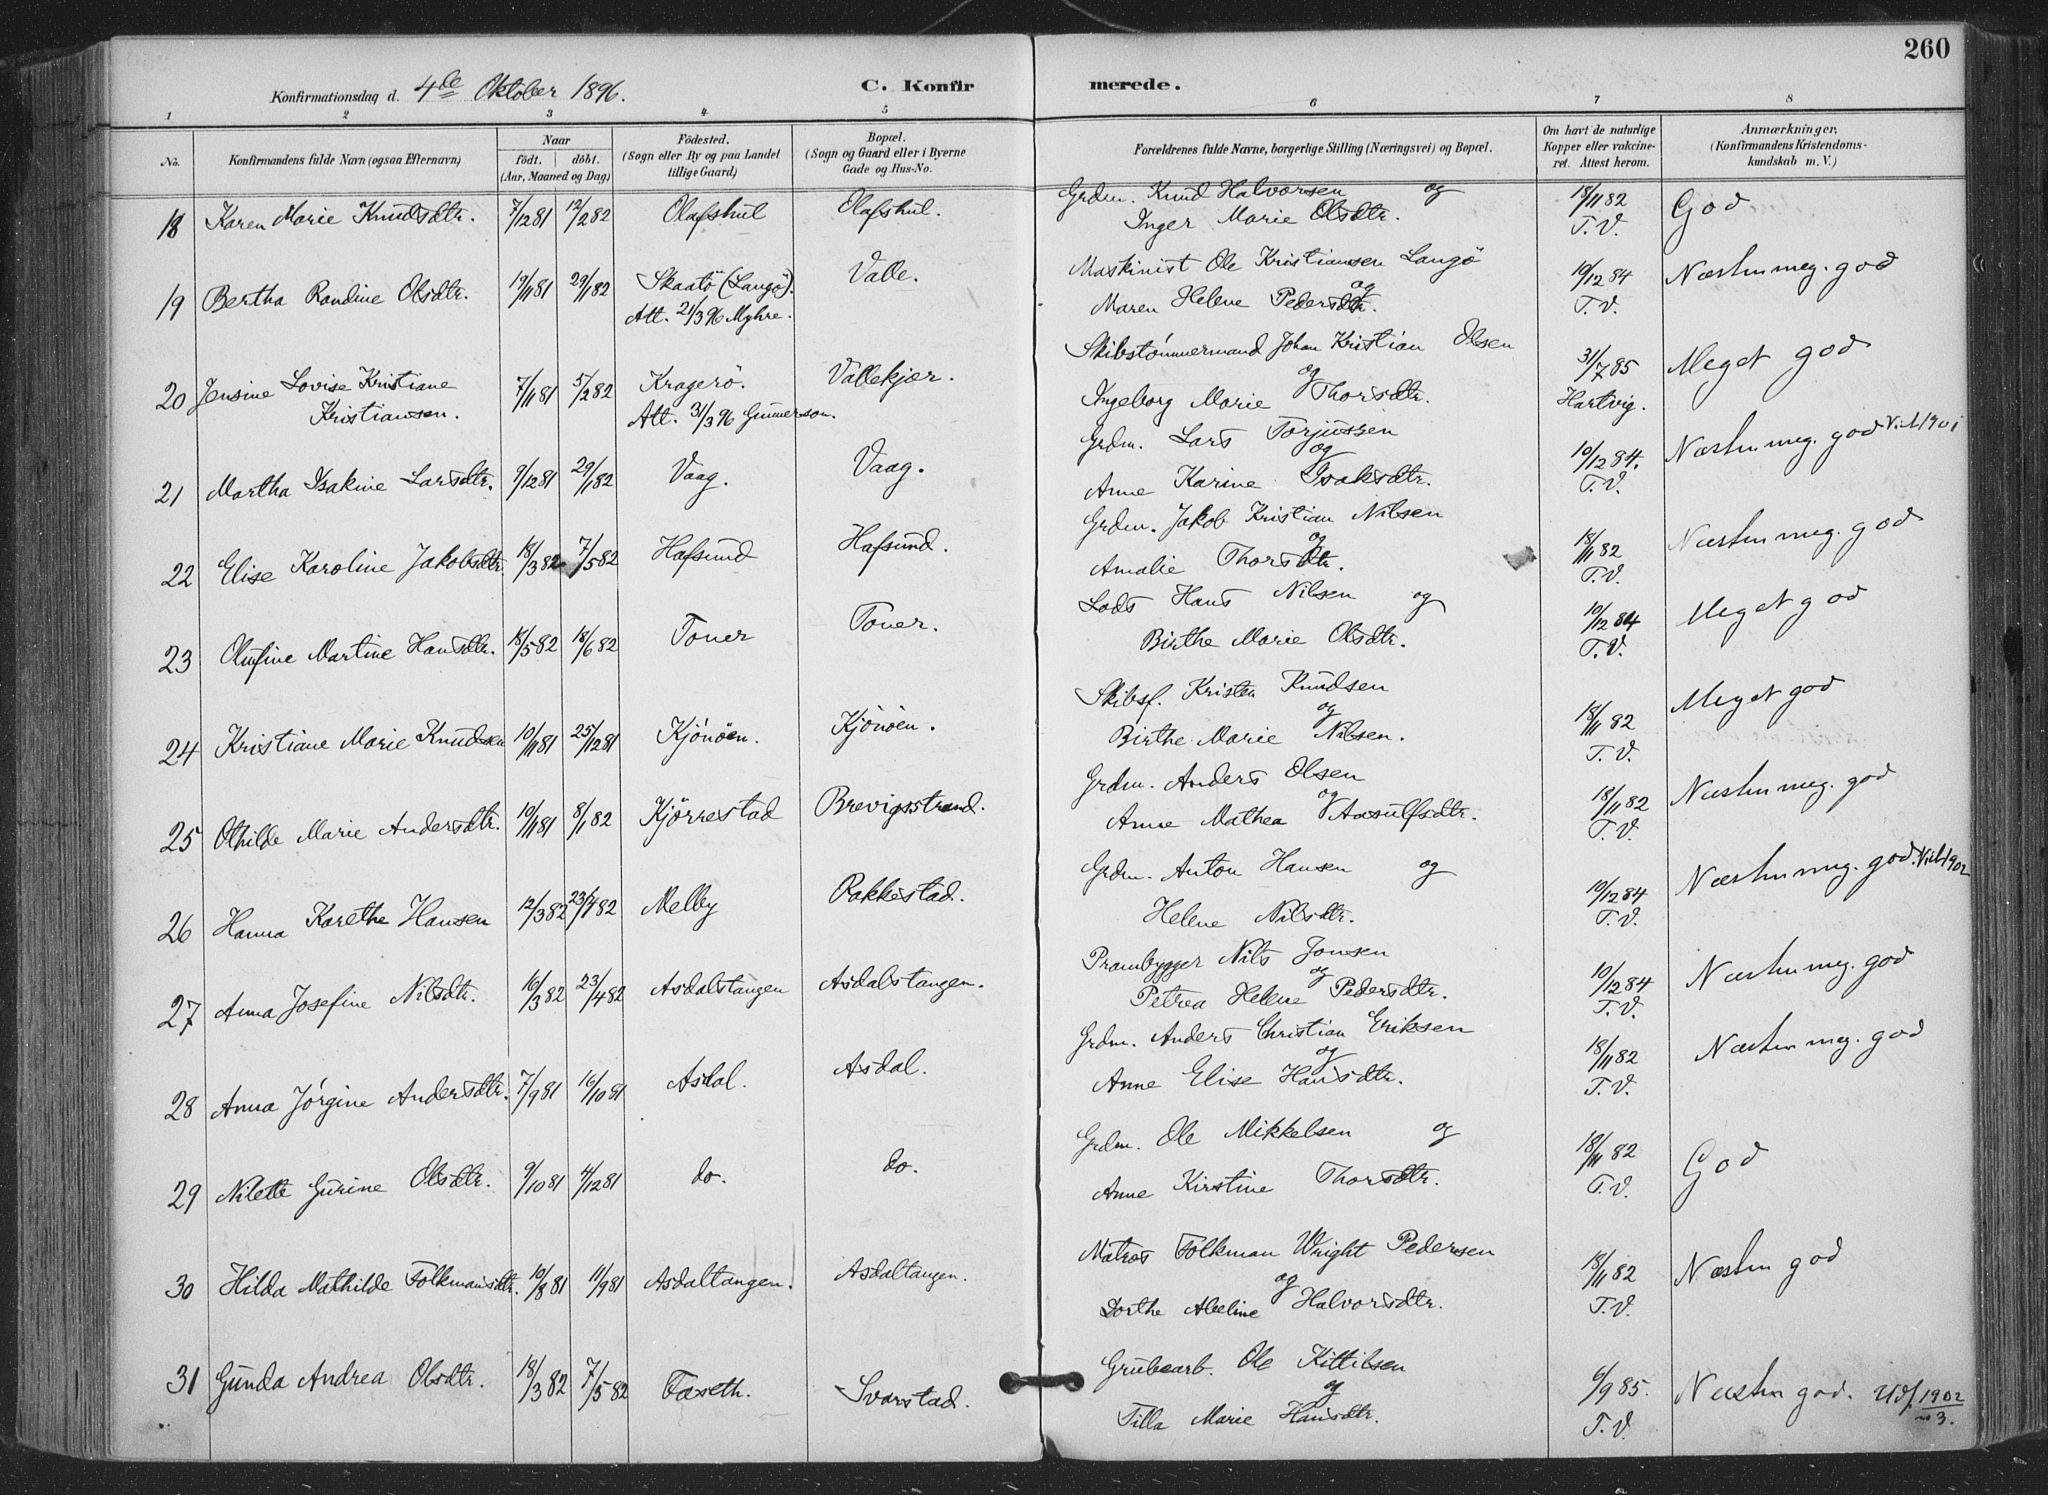 260
Konfirmationsdag d. 4de Oktober 1896.
C. Konfirmerede.
1 2 3 4 5 6 7 8
No.
Konfirmandens fulde Navn (ogsaa Efternavn)
Naar
født. døbt.
(Aar, Maaned og Dag)
Födested.
(Sogn eller By og paa Landet
tillige Gaard)
Bopæl.
(Sogn og Gaard eller i Byerne
Gade og Hus-No.
Forældrenes fulde Navne, borgerlige Stilling (Næringsvei) og Bopæl.
Om havt de naturlige
Kopper eller vakcine-
ret. Attest herom.
Anmærkninger.
(Konfirmandens Kristendoms-
kundskab m. V.)
18 Karen Marie Knudsdtr. 7/12 81 12/2 82 Olafshul Olafshul. Grdm. Knud Halvorsen og 18/11 82 God
Inger Marie Olsdtr. T.V.
19 Bertha Randine Olsdtr. 19/11 81 29/1 82 Skaatö (Langö). Valle. Maskinist Ole Kristiansen Langö 10/12 84 Næsten meg. god
Att. 21/3 96 Myhre. og
Maren Helene Pedersdtr. T.V.
20 Jensine Lovise Kristiane 7/11 81 5/2 82 Kragerö. Vallekjær. Skibstömmermand Johan Kristian Olsen 31/7 85 Meget god
Kristiansen. Att. 31/3 96 Gunnerson. og
Ingeborg Marie Thorsdtr. Hartvig.
21 Martha Isakine Larsdtr. 9/12 81 29/1 82 Vaag. Vaag. Grdm. Lars Torjussen 10/12 84. Næsten meg. god 1901
og
Anne Karine Isaksdtr. T.V.
22 Elise Karoline Jakobsdtr. 18/3 82 7/5 82 Hafsund Hafsund. Grdm. Jakob Kristian Nilsen 18/11 82 Næsten meg. god
og
Amalie Thorsdtr. T.V.
23 Olufine Martine Hansdtr. 18/5 82 18/6 82 Toner Toner. Lods Hans Nilsen og 10/12 84 Meget god
Birthe Marie Olsdtr. T.V.
24 Kristiane Marie Knudsen 10/11 81 25/12 81 Kjönöen. Kjönöen. Skibsf. Kristen Knudsen 18/11 82 Meget god
og
Birthe Marie Nilsen. T.V.
25 Othilde Marie Andersdtr. 10/11 81 8/1 82 Kjörrestad Brevigsstrand. Grdm. Anders Olsen 18/11 82 Næsten meg. god
og
Anne Mathea Aasulfsdtr. T.V.
26 Hanna Karethe Hansen 12/3 82 23/4 82 Melby Rakkestad. Grdm. Anton Hansen og 10/12 84 Næsten meg. god. 1902
Helene Nilsdtr. T.V.
27 Anna Josefine Nilsdtr. 16/3 82 23/4 82 Asdalstangen Asdalstangen. Prambygger Nils Jonsen 10/12 84 Næsten meg. god
og
Petrea Helene Pedersdtr. T.V.
28 Anna Jörgine Andersdtr. 7/9 81 16/10 81 Asdal. Asdal. Grdm. Anders Christian Eriksen 18/11 82 Næsten meg. god
og
Anne Elise Hansdtr. T.V.
29 Nilette Gurine Olsdtr. 9/10 81 4/12 81 do. do. Grdm. Ole Mikkelsen og 18/11 82 God
Anne Kirstine Thorsdtr. T.V.
30 Hilda Mathilde Folkmansdtr. 10/8 81 11/9 81 Asdaltangen. Asdaltangen. Matros Folkman Wright Pedersen 18/11 82 Næsten god
og
Dorthe Abeline Halvorsdtr. T.V.
31 Gunda Andrea Olsdtr. 18/3 82 7/5 82 Faseth. Svarstad. Grubearb. Ole Kittilsen 6/9 85. Næsten god. Udf. 1902
og n 3.
Tilla Marie Hansdtr. T.V.